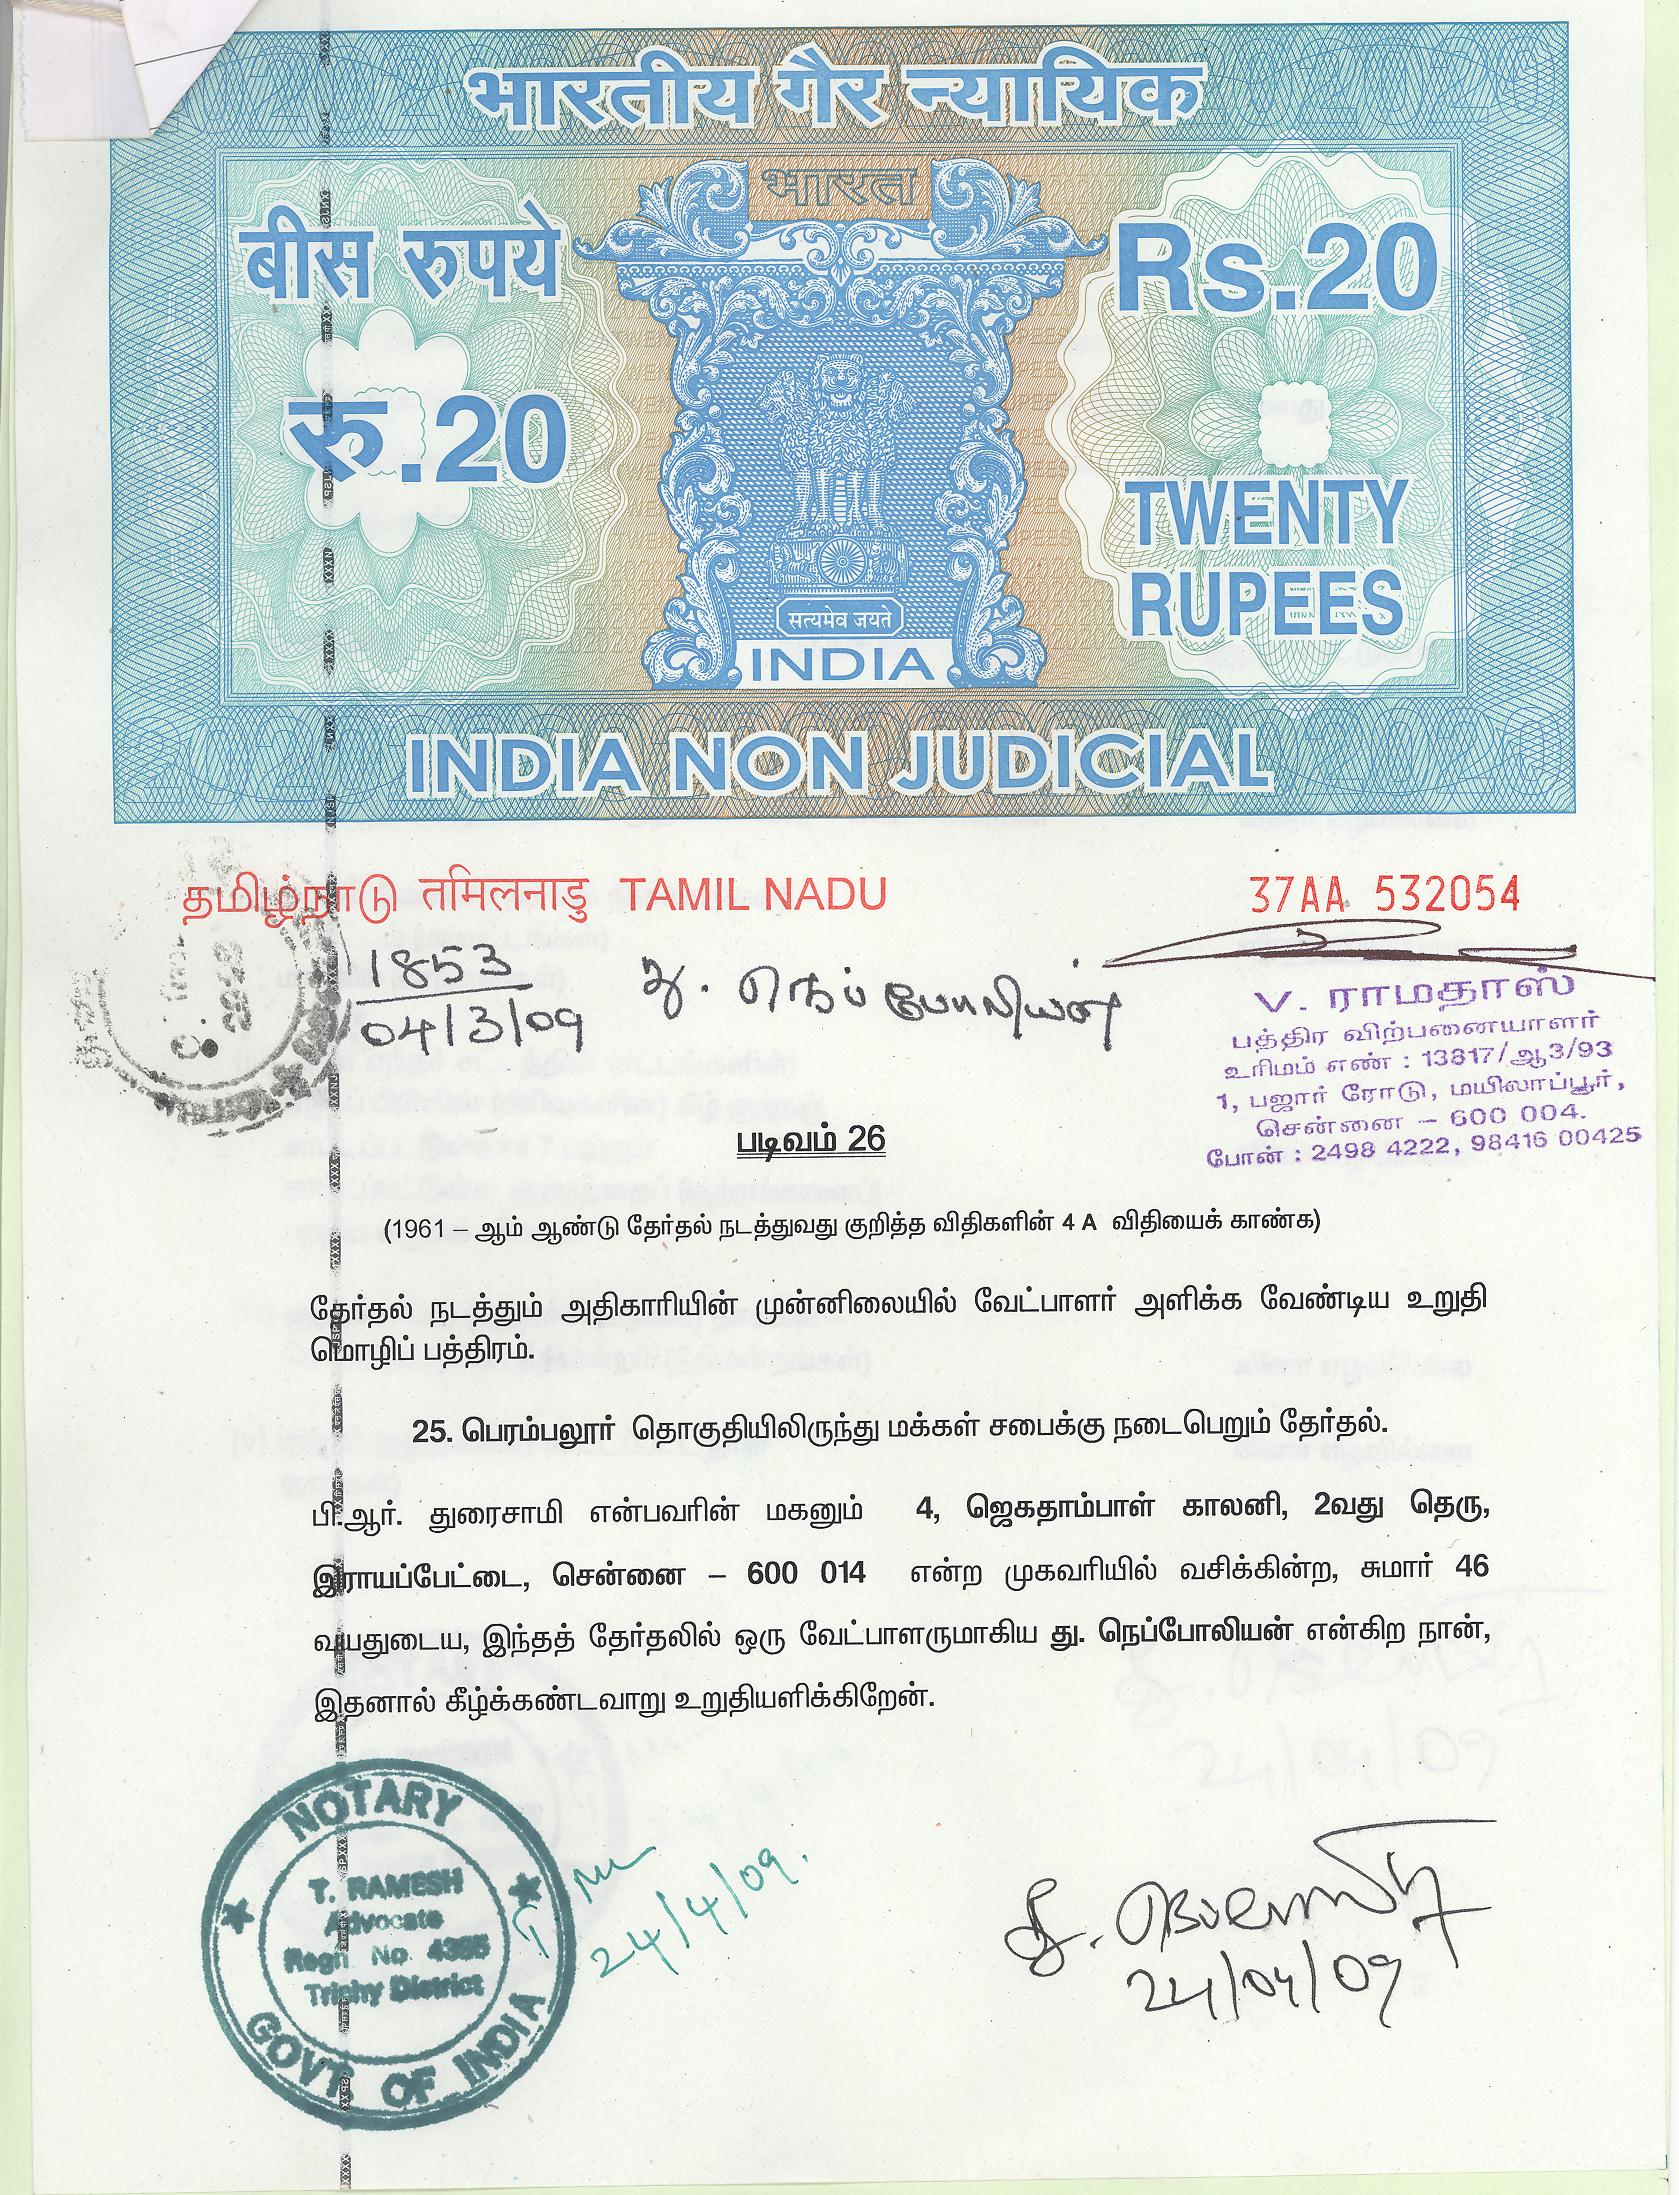 भारतीय गैर न्यायिक
भारत
बीस रुपये
Rs.20
रु.20
TWENTY
RUPEES
सत्यमेव जयते
INDIA
INDIA NON JUDICIAL
தமிழ்நாடு तमिलनाडु TAMIL NADU
37AA 532054
1853
04/3/09
து. நெப்போலியன்
V. ராமதாஸ்
பத்திர விற்பனையாளர்
உரிமம் எண் : 13817/ஆ3/93
1, பஜார் ரோடு, மயிலாப்பூர்,
சென்னை – 600 004.
போன் : 2498 4222, 98416 00425
படிவம் 26
(1961 – ஆம் ஆண்டு தேர்தல் நடத்துவது குறித்த விதிகளின் 4 A விதியைக் காண்க)
தேர்தல் நடத்தும் அதிகாரியின் முன்னிலையில் வேட்பாளர் அளிக்க வேண்டிய உறுதி
மொழிப் பத்திரம்.
25. பெரம்பலூர் தொகுதியிலிருந்து மக்கள் சபைக்கு நடைபெறும் தேர்தல்.
பி.ஆர். துரைசாமி என்பவரின் மகனும் 4, ஜெகதாம்பாள் காலனி, 2வது தெரு,
இராயப்பேட்டை, சென்னை – 600 014 என்ற முகவரியில் வசிக்கின்ற, சுமார் 46
வயதுடைய, இந்தத் தேர்தலில் ஒரு வேட்பாளருமாகிய து. நெப்போலியன் என்கிற நான்,
இதனால் கீழ்க்கண்டவாறு உறுதியளிக்கிறேன்.
NOTARY
T. RAMESH
Advocate
Regn. No. 4395
Trichy District
GOVT. OF INDIA
24/4/09.
24/04/09